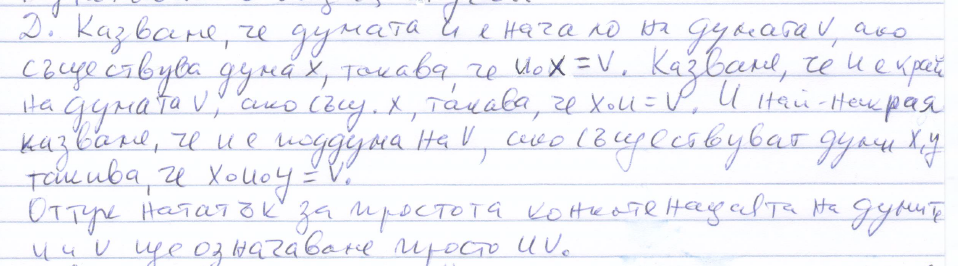 D. Казваме, че думата u е начало на думата v, ако
съществува дума x, такава, че u∘x = v. Казваме, че u е край
на думата v, ако същ. x, такава, че x∘u = v. И най-накрая
казваме, че u е поддума на v, ако съществуват думи x, y
такива, че x∘u∘y = v.
Оттук нататък за простота конкатенацията на думите
u и v ще означаваме просто uv.